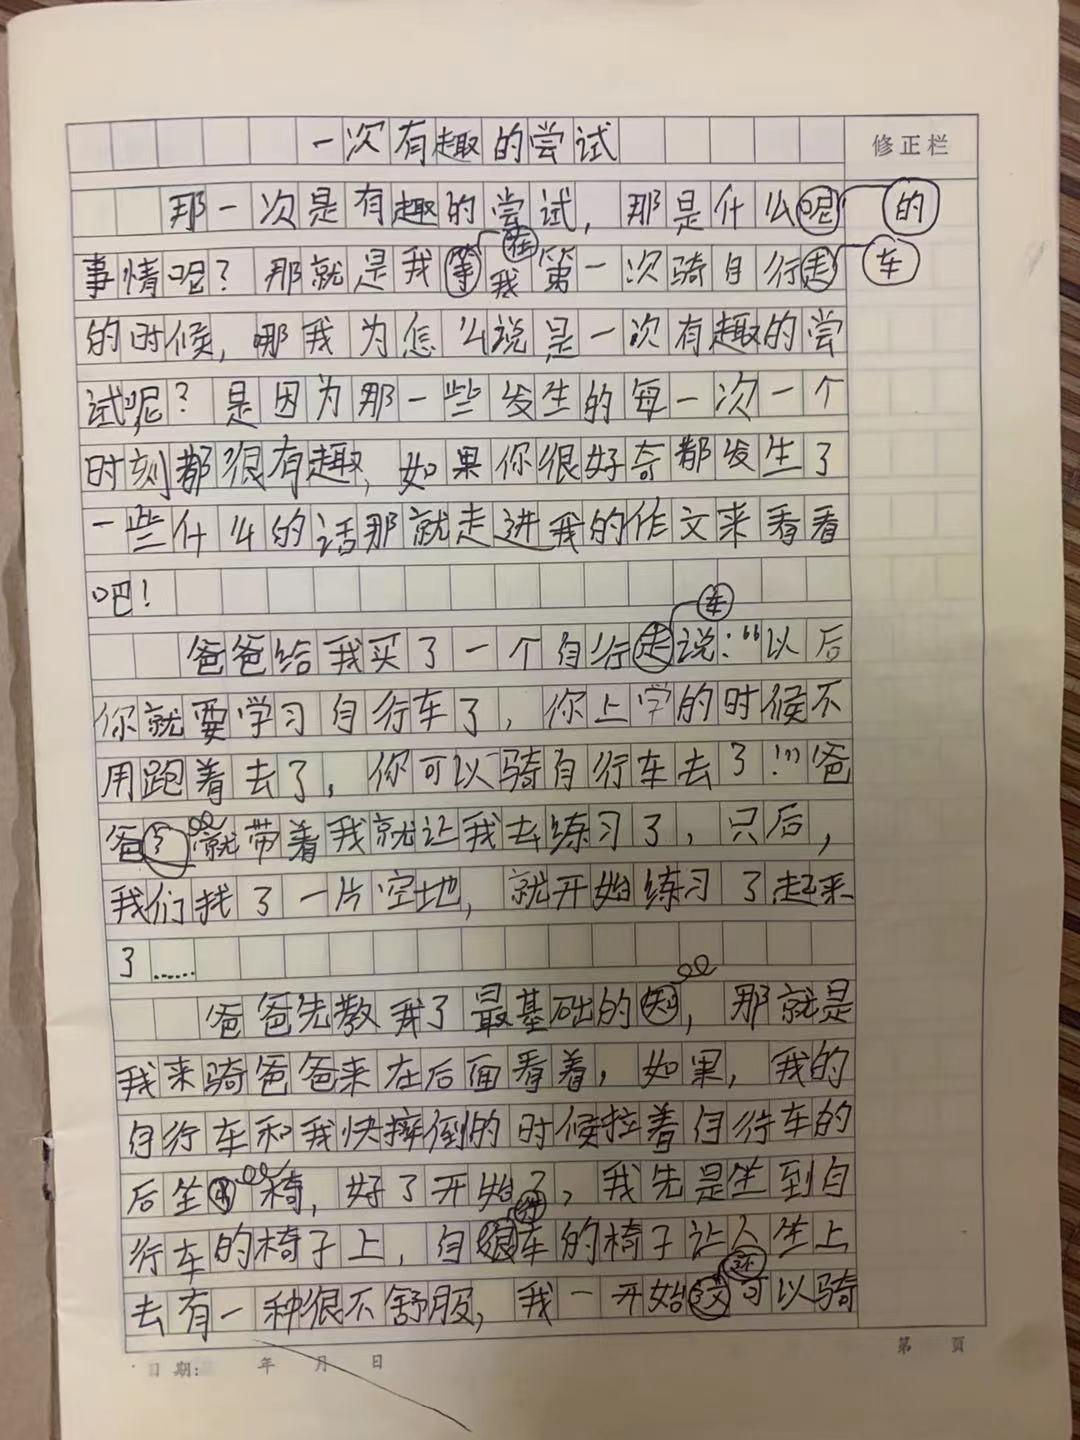 一次有趣的尝试
修正栏
那一次是有趣的尝试，那是什么呢的
事情呢？那就是我等在我第一次骑自行走车
的时候，哪我为怎么说是一次有趣的尝
试呢？是因为那一些发生的每一次一个
时刻都很有趣，如果你很好奇都发生了
一些什么的话那就走进我的作文来看看
吧！
爸爸给我买了一个自行走车说：“以后
你就要学习自行车了，你上学的时候不
用跑着去了，你可以骑自行车去了！”爸
爸了就带着我就让我去练习了，只后，
我们找了一片空地，就开始练习了起来
了……
爸爸先教我了最基础的知，那就是
我来骑爸爸来在后面看着，如果，我的
自行车和我快摔倒的时候拉着自行车的
后坐椅，好了开始了，我先是坐到自
行车的椅子上，自行车的椅子让人坐上
去有一种很不舒服，我一开始还可以骑
日期： 年 月 日
第 页